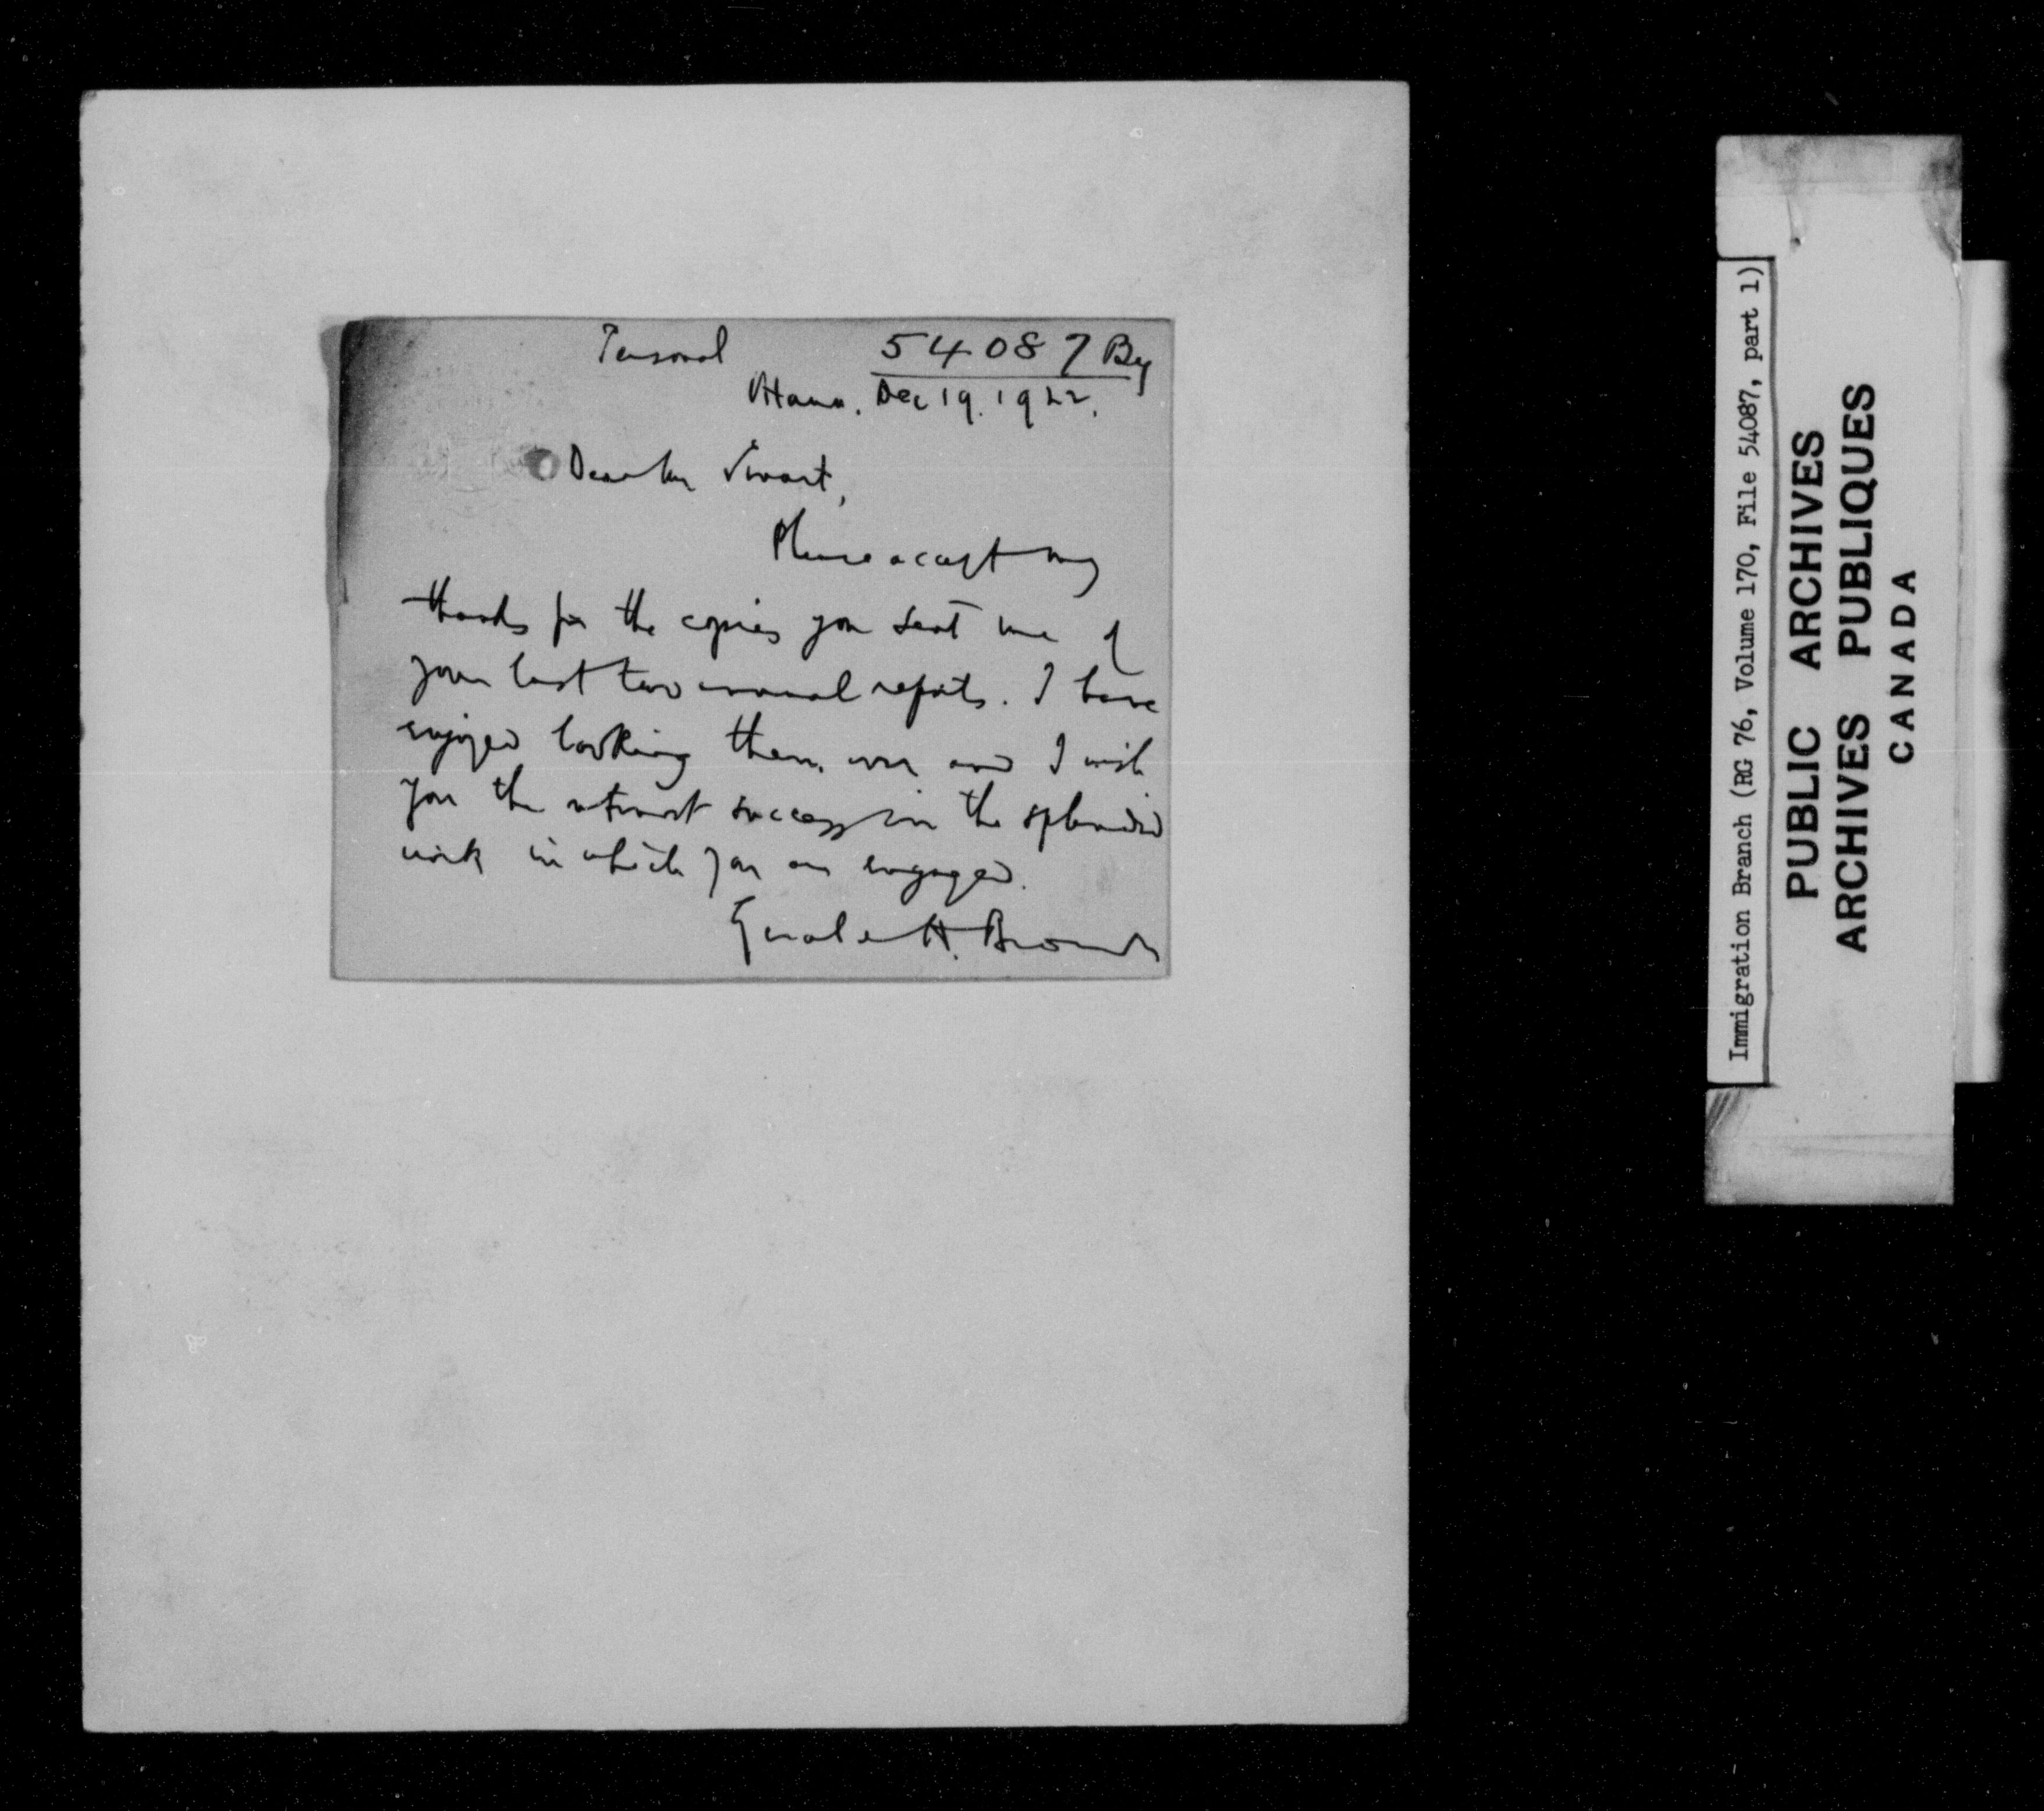 Personal
54087 By
Ottawa. Dec 19. 1922.
Dear Mr Stewart,
Please accept my
thanks for the copies you sent me of
your last two annual reports. I have
enjoyed looking them over and I wish
you the utmost success in the splendid
work in which you are engaged.
Gerald H. Brown
Immigration Branch (RG 76, Volume 170, File 54087, part 1)
PUBLIC ARCHIVES
ARCHIVES PUBLIQUES
CANADA